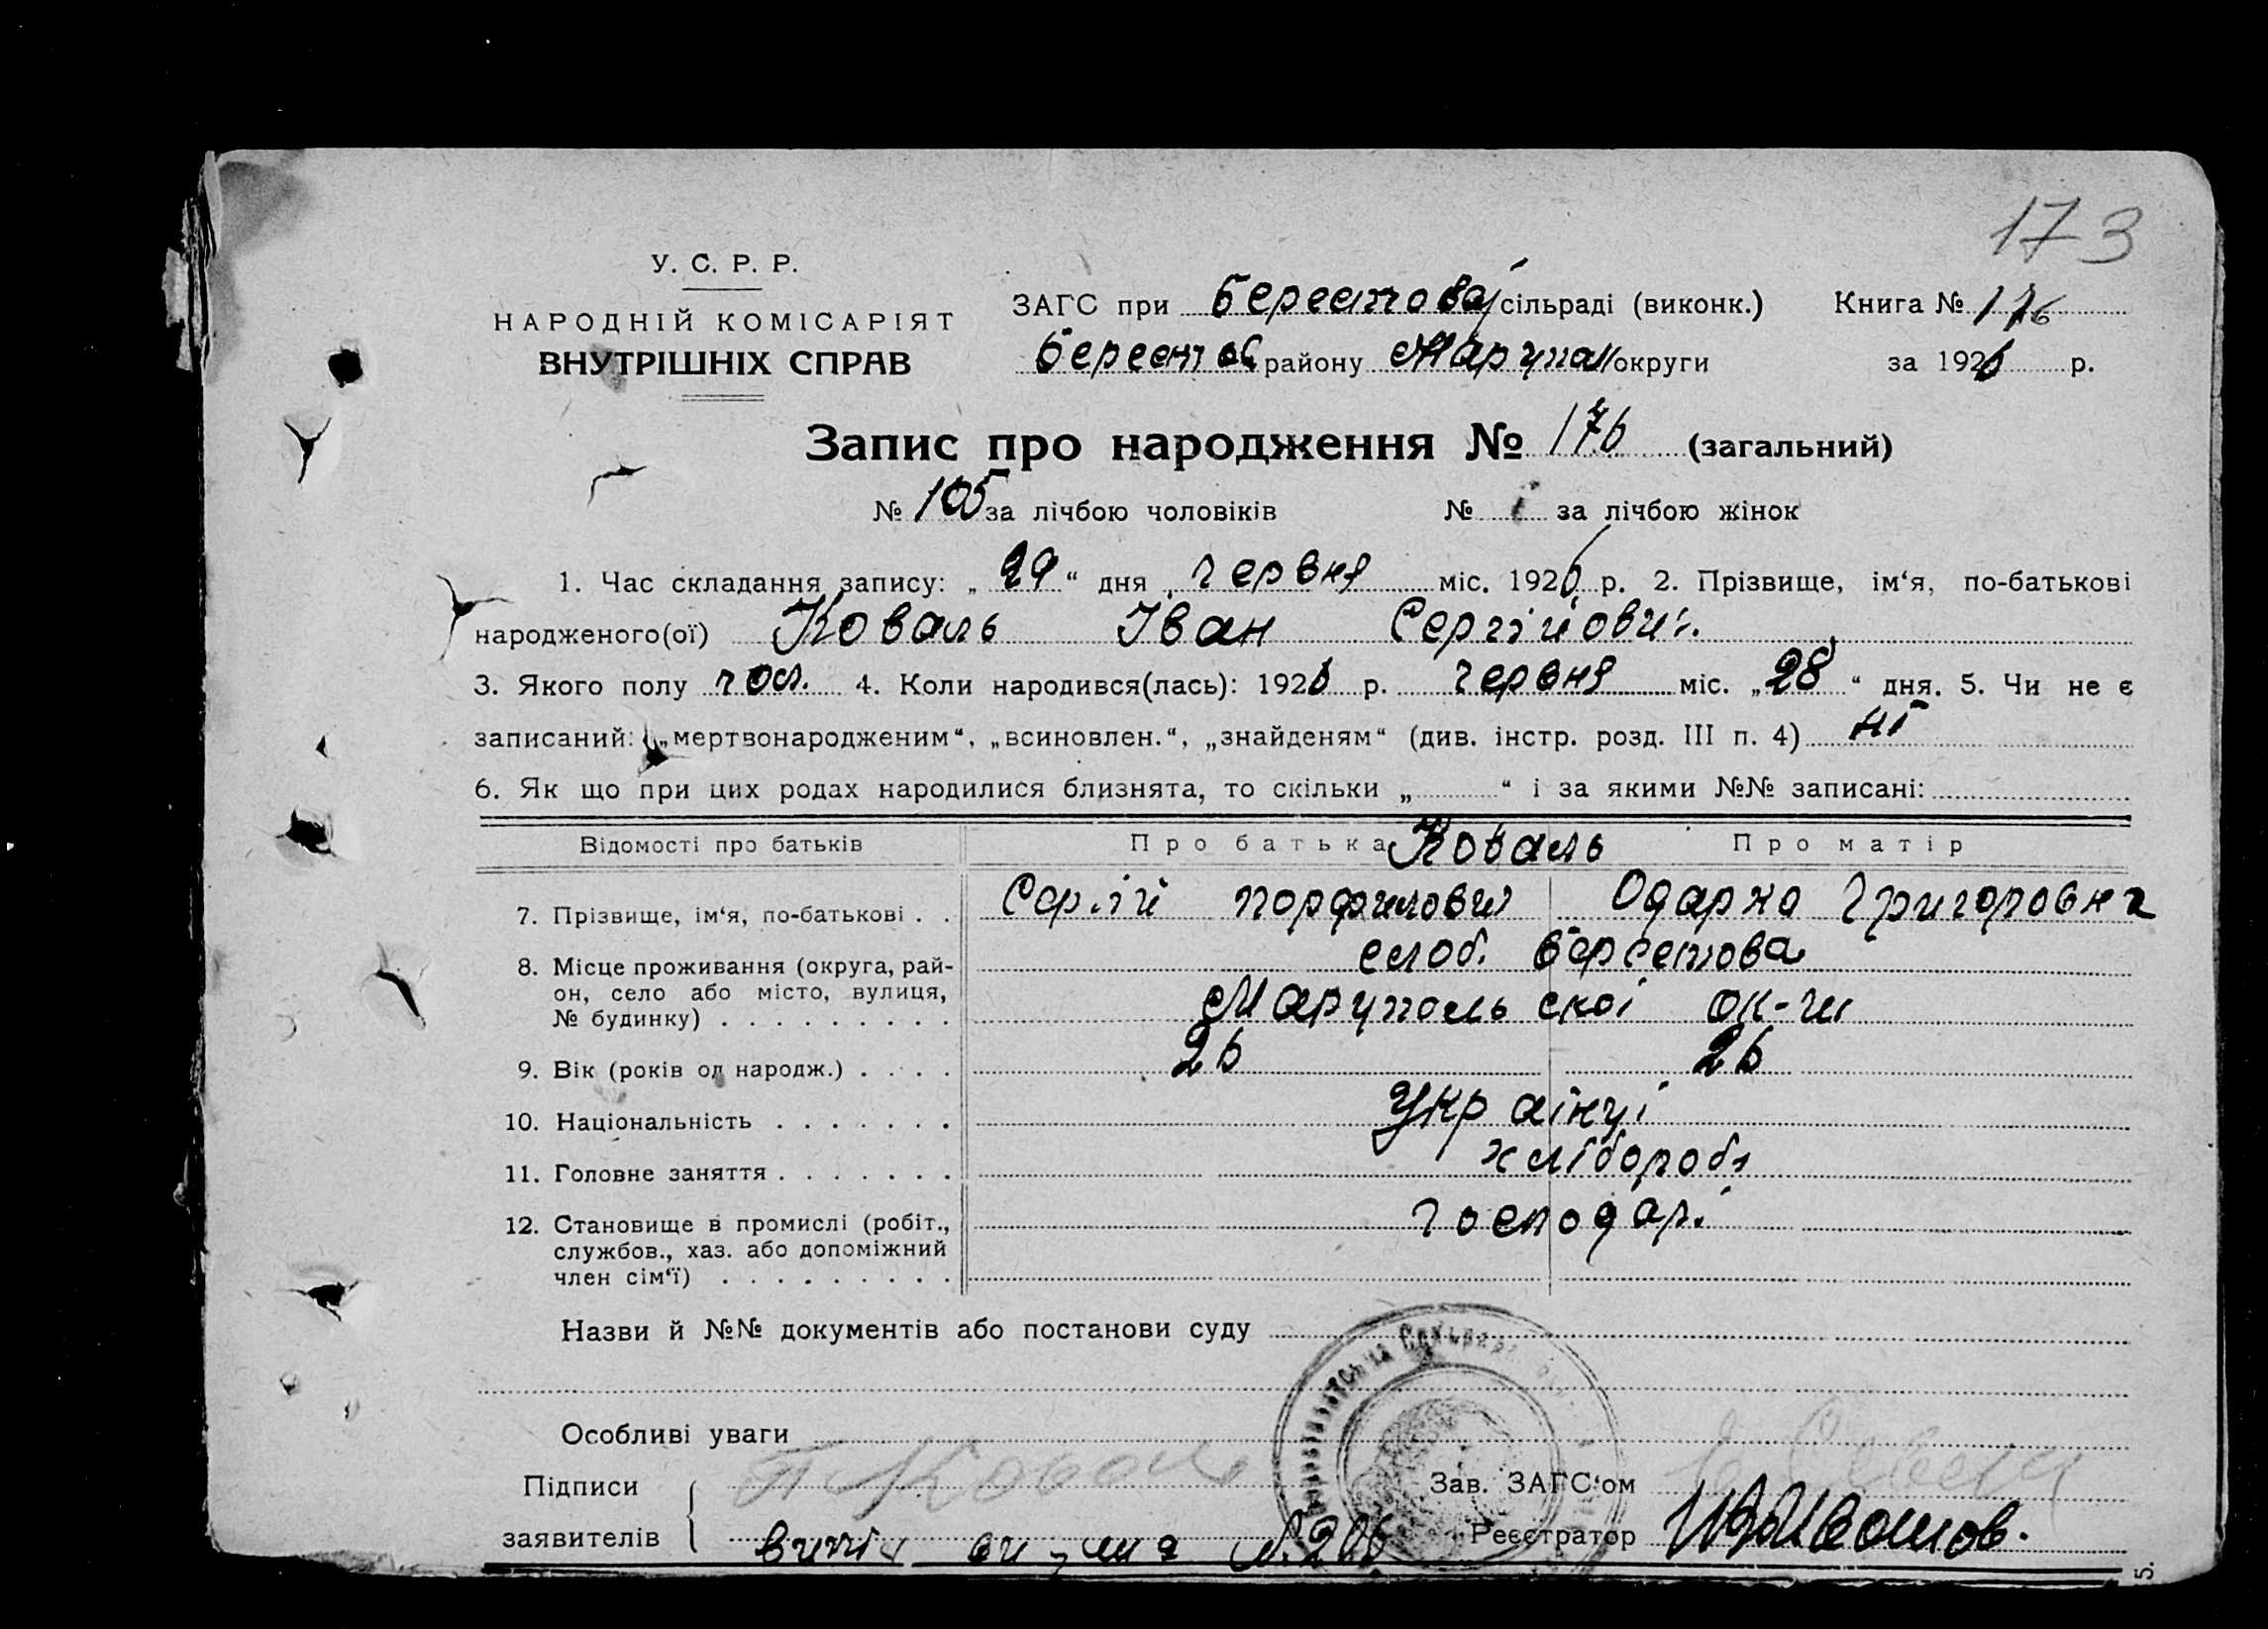 173
У. С. Р. Р.
НАРОДНІЙ КОМІСАРІЯТ
ВНУТРІШНІХ СПРАВ
ЗАГС при Берестовій сільраді (виконк.) Книга № 176
Берестов району Маріупол округи за 1926 р.
Запис про народження № 176 (загальний)
№ 105 за лічбою чоловіків № за лічбою жінок
1. Час складання запису: „ 29 “ дня червня міс. 1926 р. 2. Прізвище, ім‘я, по-батькові
народженого(ої) Коваль Іван Сергійович.
3. Якого полу чол. 4. Коли народився(лась): 1926 р. червня міс. „ 28 “ дня. 5. Чи не є
записаний: „мертвонародженим“, „всиновлен.“, „знайденям“ (див. інстр. розд. III п. 4) ні
6. Як що при цих родах народилися близнята, то скільки „ “ і за якими №№ записані:
Відомості про батьків Про батька Коваль Про матір
7. Прізвище, ім‘я, по-батькові . . Сергій Порфилович Одарка Григоровна
8. Місце проживання (округа, рай- слоб. Берестова
он, село або місто, вулиця,
№ будинку) . . . . . . . . . Маріупольскоі ок-ги
9. Вік (років од народж.) . . . . 26 26
10. Національність . . . . . . . Украінці
11. Головне заняття . . . . . . . хлібороби
12. Становище в промислі (робіт., господарі
службов., хаз. або допоміжний
член сім‘ї) . . . . . . . . .
Назви й №№ документів або постанови суду
Особливі уваги
Підписи Коваль Зав. ЗАГС‘ом
заявителів № 206 Реєстратор
5.